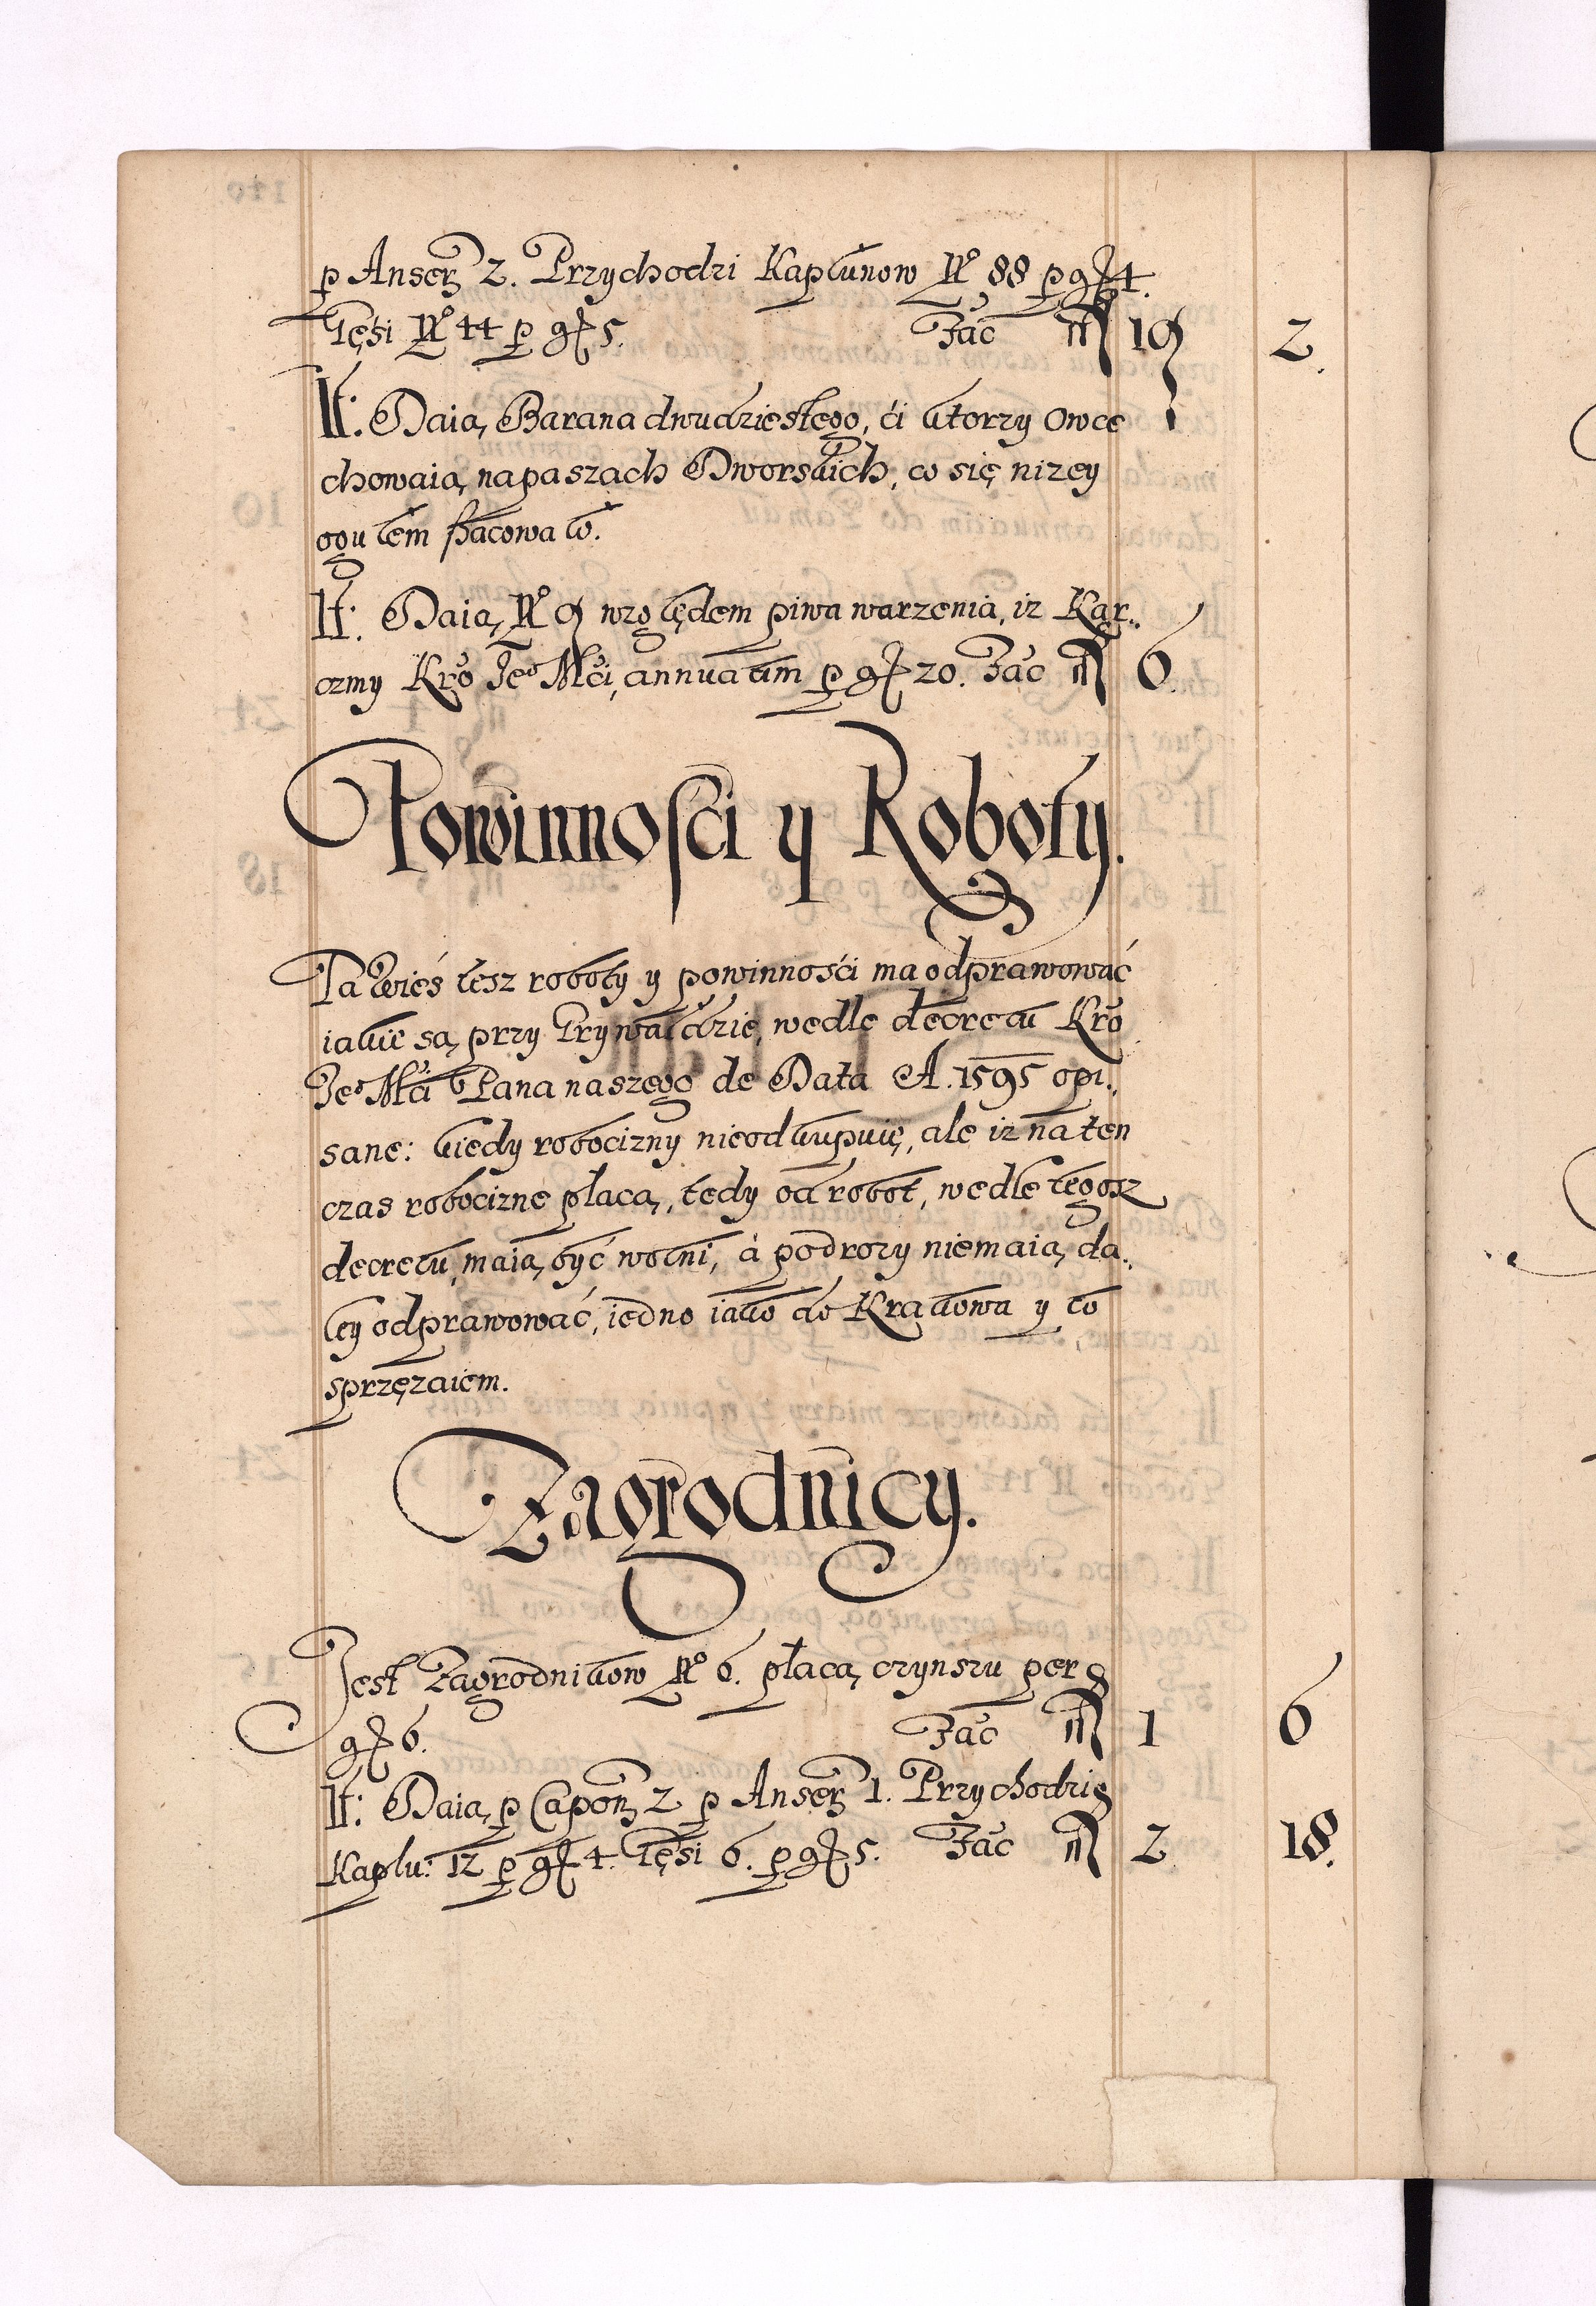 p Anser 2. Przychodzi Kapłunow No 88 p gr 4.
Gęsi No 44 p gr 5. Fac m 19 2.
It: Daią Barana dwudziestego, ci ktorzy owce
chowaią na paszach Dworskich, co się nizey
ogułem szacowało.
It: Daią No 9 względem piwa warzenia, iz Kar-
czmy Kro Jeo Mci, annuatim p gr 20. Fac m 6.
Powinności y Roboty.
Ta wieś tesz roboty y powinności ma odprawować
iakie są przy Grywałdzie, wedle decretu Kro
Jeo Mci Pana naszego de Data A. 1595 opi-
sane: kiedy robocizny nieodkupuię, ale iz na ten
czas robocizne płacą, tedy od robot, wedle tegosz
decretu, maią być wolni, à podrozy niemaią da-
ley odprawować, iedno iako do Krakowa y to
sprzęzaiem.
Zagrodnicy.
Jest Zagrodnikow No 6. płacą czynszu per
gr 6. Fac m 1 6
It: Daią p Capon 2 p Anser 1. Przychodzi
Kaplu: 12 p gr 4. Gęsi 6. p gr 5. Fac m 2 18.